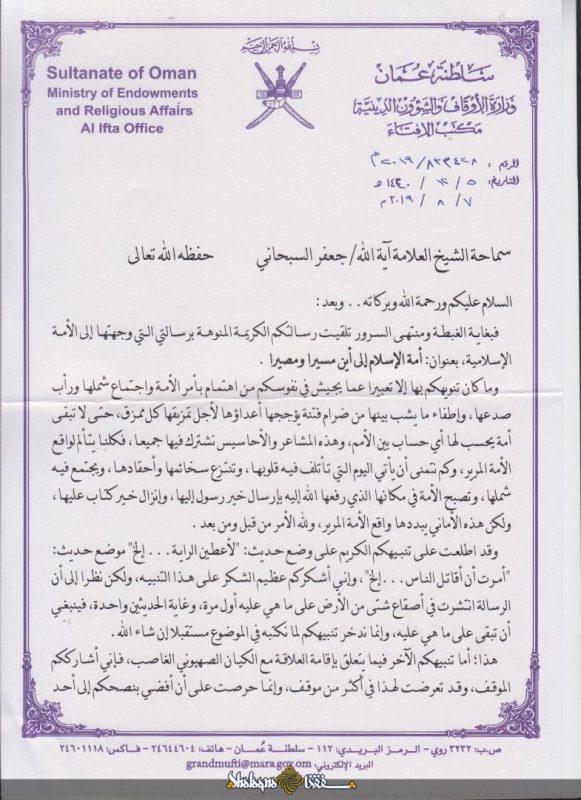 بسم الله الرحمن الرحيم
سلطنة عُمان
وزارة الأوقاف والشؤون الدينية
مكتب الإفتاء
Sultanate of Oman
Ministry of Endowments
and Religious Affairs
Al Ifta Office
الرقم : ٢٠١٩/٨٣٣٤٢٨م
التاريخ: ٥ / ١٢ / ١٤٤٠ هـ
٧ / ٨ / ٢٠١٩م
سماحة الشيخ العلامة آية الله/ جعفر السبحاني حفظه الله تعالى
السلام عليكم ورحمة الله وبركاته .. وبعد :
فبغاية الغبطة ومنتهى السرور تلقيت رسالتكم الكريمة المنوهة برسالتي التي وجهتها إلى الأمة
الإسلامية، بعنوان: أمة الإسلام إلى أين مسيرا ومصيرا .
وما كان تنويهكم بها إلا تعبيرا عما يجيش في نفوسكم من اهتمام بأمر الأمة واجتماع شملها ورأب
صدعها، وإطفاء ما يشب بينها من ضرام فتنة يؤججها أعداؤها لأجل تمزيقها كل ممزق، حتى لا تبقى
أمة يحسب لها أي حساب بين الأمم، وهذه المشاعر والأحاسيس نشترك فيها جميعا، فكلنا يتألم لواقع
الأمة المرير، وكم نتمنى أن يأتي اليوم التي تأتلف فيه قلوبها، وتنتزع سخائمها وأحقادها، ويجتمع فيه
شملها، وتصبح الأمة في مكانها الذي رفعها الله إليه بإرسال خير رسول إليها، وإنزال خير كتاب عليها،
ولكن هذه الأماني يبددها واقع الأمة المرير، ولله الأمر من قبل ومن بعد .
وقد اطلعت على تنبيهكم الكريم على وضع حديث: "لأعطين الراية... إلخ" موضع حديث:
"أمرت أن أقاتل الناس... إلخ"، وإني أشكركم عظيم الشكر على هذا التنبيه، ولكن نظرا إلى أن
الرسالة انتشرت في أصقاع شتى من الأرض على ما هي عليه أول مرة، وغاية الحديثين واحدة، فينبغي
أن تبقى على ما هي عليه، وإنما ندخر تنبيهكم لما نكتبه في الموضوع مستقبلا إن شاء الله .
هذا؛ أما تنبيهكم الآخر فيما يتعلق بإقامة العلاقة مع الكيان الصهيوني الغاصب، فإني أشارككم
الموقف، وقد تعرضت لهذا في أكثر من موقف، وإنما حرصت على أن أفضي بنصحكم إلى أحد
ص.ب: ٣٢٣٢ روي - الرمز البريدي: ١١٢ - سلطنة عُمان - هاتف: ٢٤٦٤٤٦٠٤ - فاكس: ٢٤٦٠١١١٨
البريد الإلكتروني: grandmufti@mara.gov.om
Shabaqna شفقنا